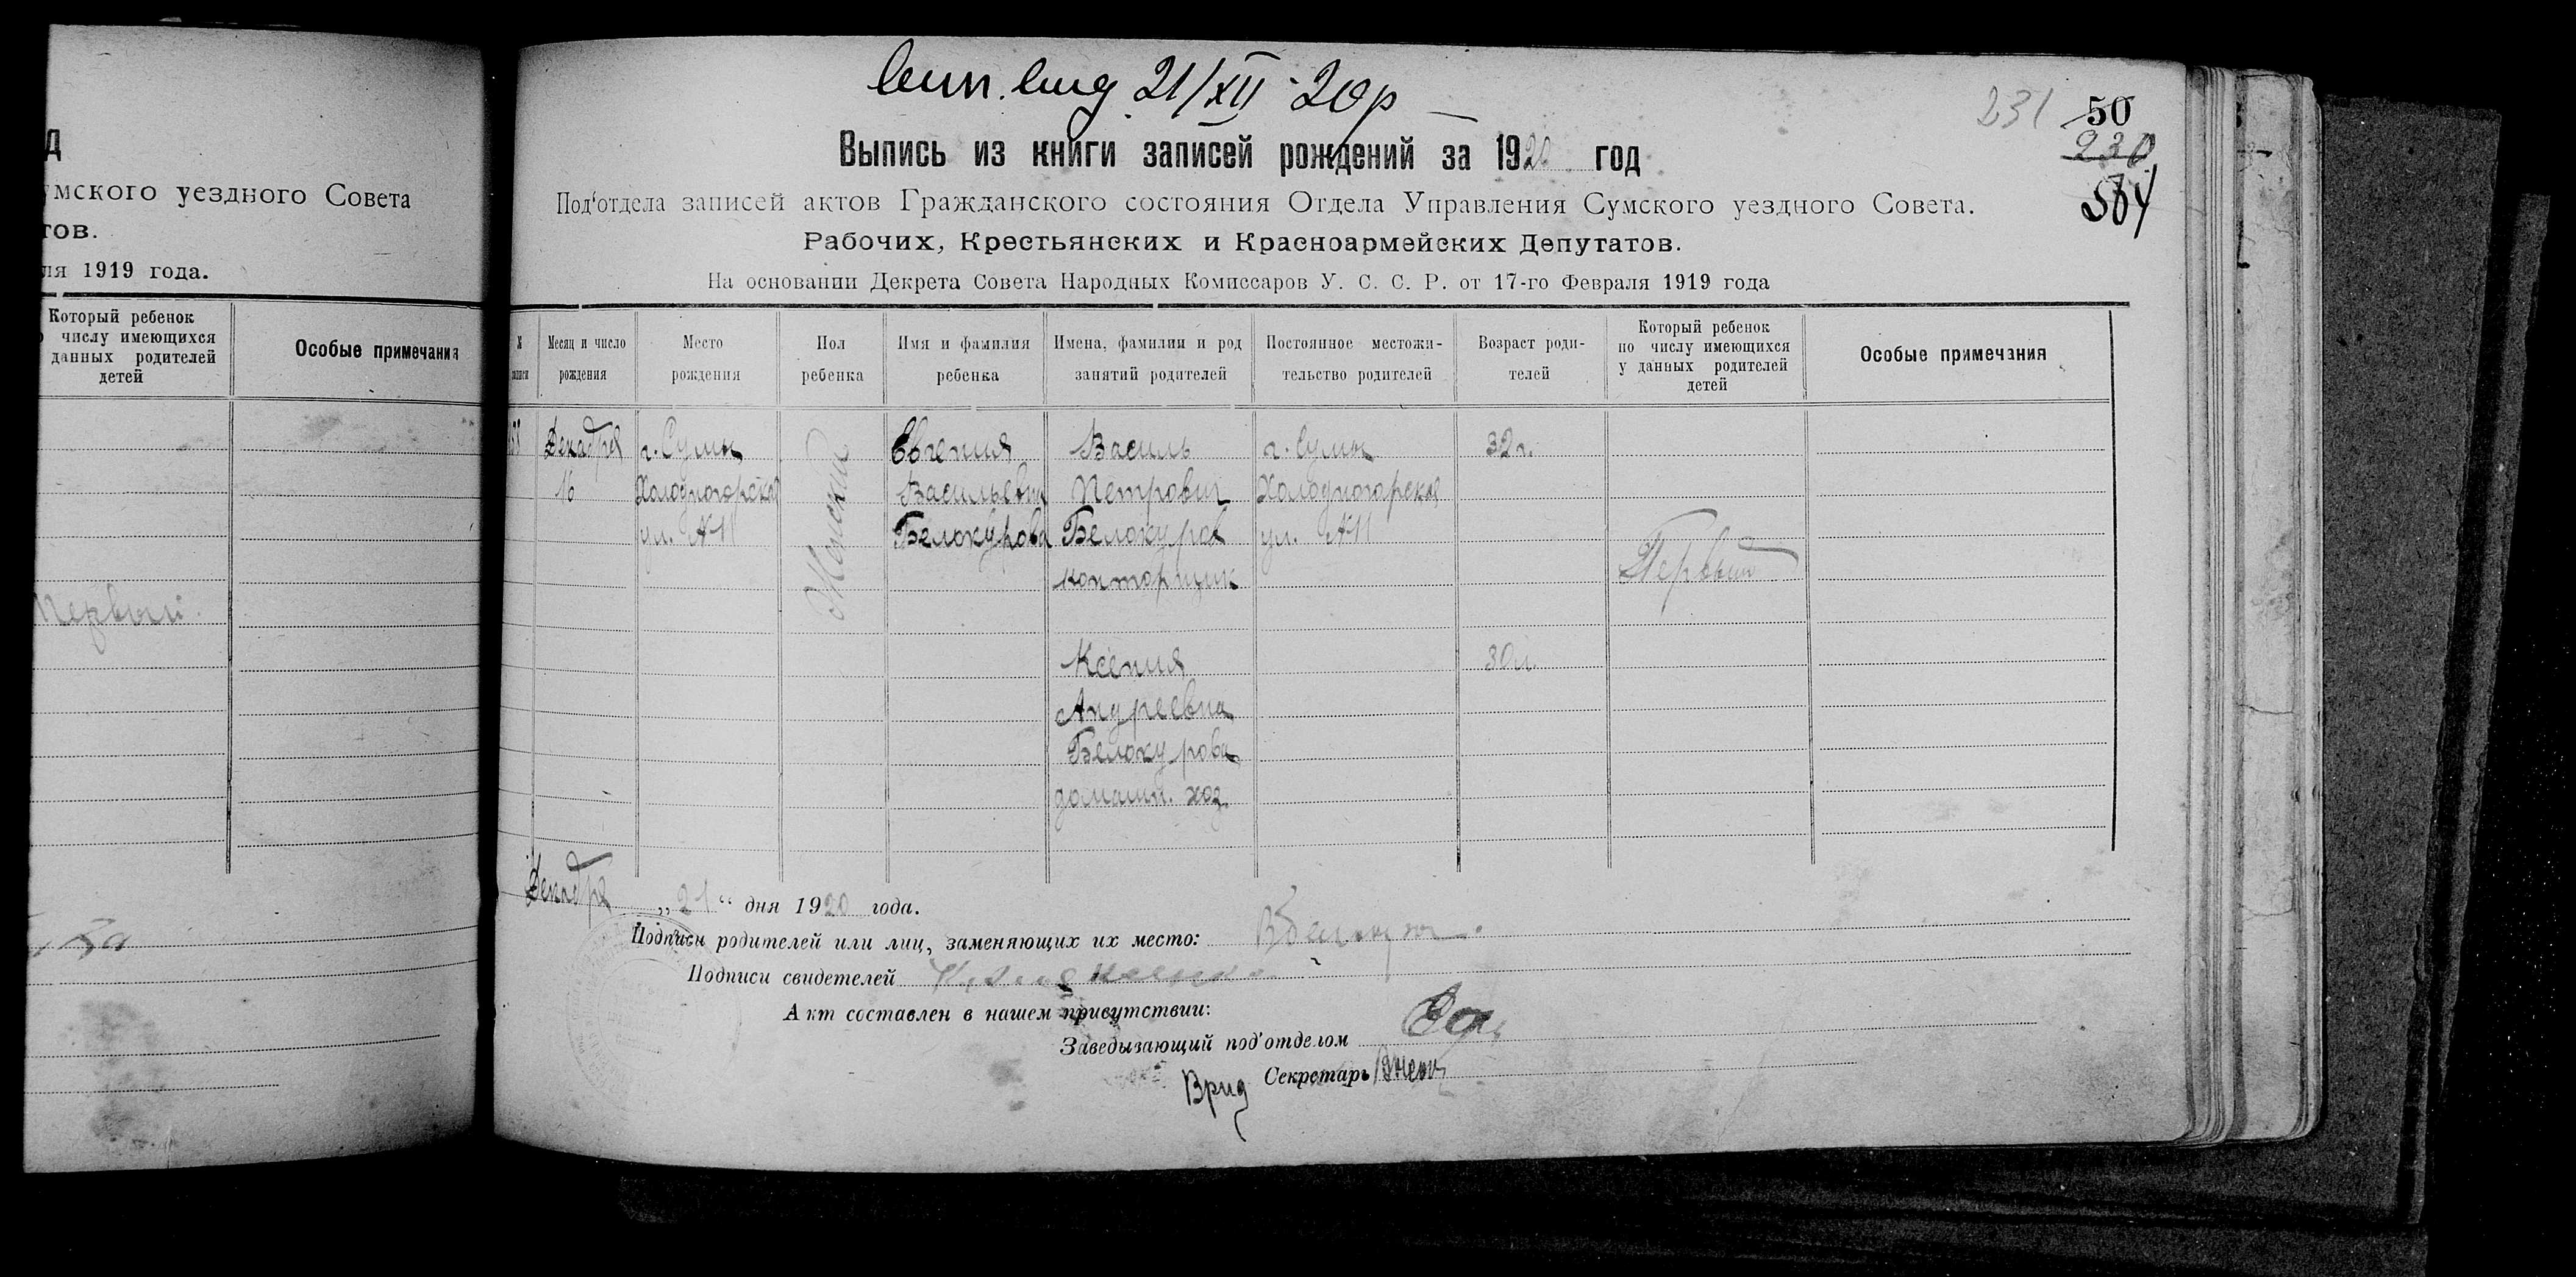 д
умского уездного Совета
тов.
ля 1919 года.
Который ребенок
по числу имеющихся
данных родителей
детей
Особые примечания
Первый.
21/XII 20р
231
50
230
584
Выпись из книги записей рождений за 1920 год
Под'отдела записей актов Гражданского состояния Отдела Управления Сумского уездного Совета.
Рабочих, Крестьянских и Красноармейских Депутатов.
На основании Декрета Совета Народных Комиссаров У. С. С. Р. от 17-го Февраля 1919 года
№ записи
Месяц и число рождения
Место рождения
Пол ребенка
Имя и фамилия ребенка
Имена, фамилии и род занятий родителей
Постоянное местожительство родителей
Возраст родителей
Который ребенок по числу имеющихся у данных родителей детей
Особые примечания
Декабря
16
г. Сумы
Холодногорская
ул. №11
Женский
Евгения
Васильевна
Белокурова
Василь
Петрович
Белокуров
конторщик
Ксения
Андреевна
Белокурова
домашн. хоз.
г. Сумы
Холодногорская
ул. №11
32 г.
30 л.
Первый
Декабря „21“ дня 1920 года.
Подписи родителей или лиц, заменяющих их место: В Белокуров
Подписи свидетелей
Акт составлен в нашем присутствии:
Заведывающий под'отделом
Врид Секретарь